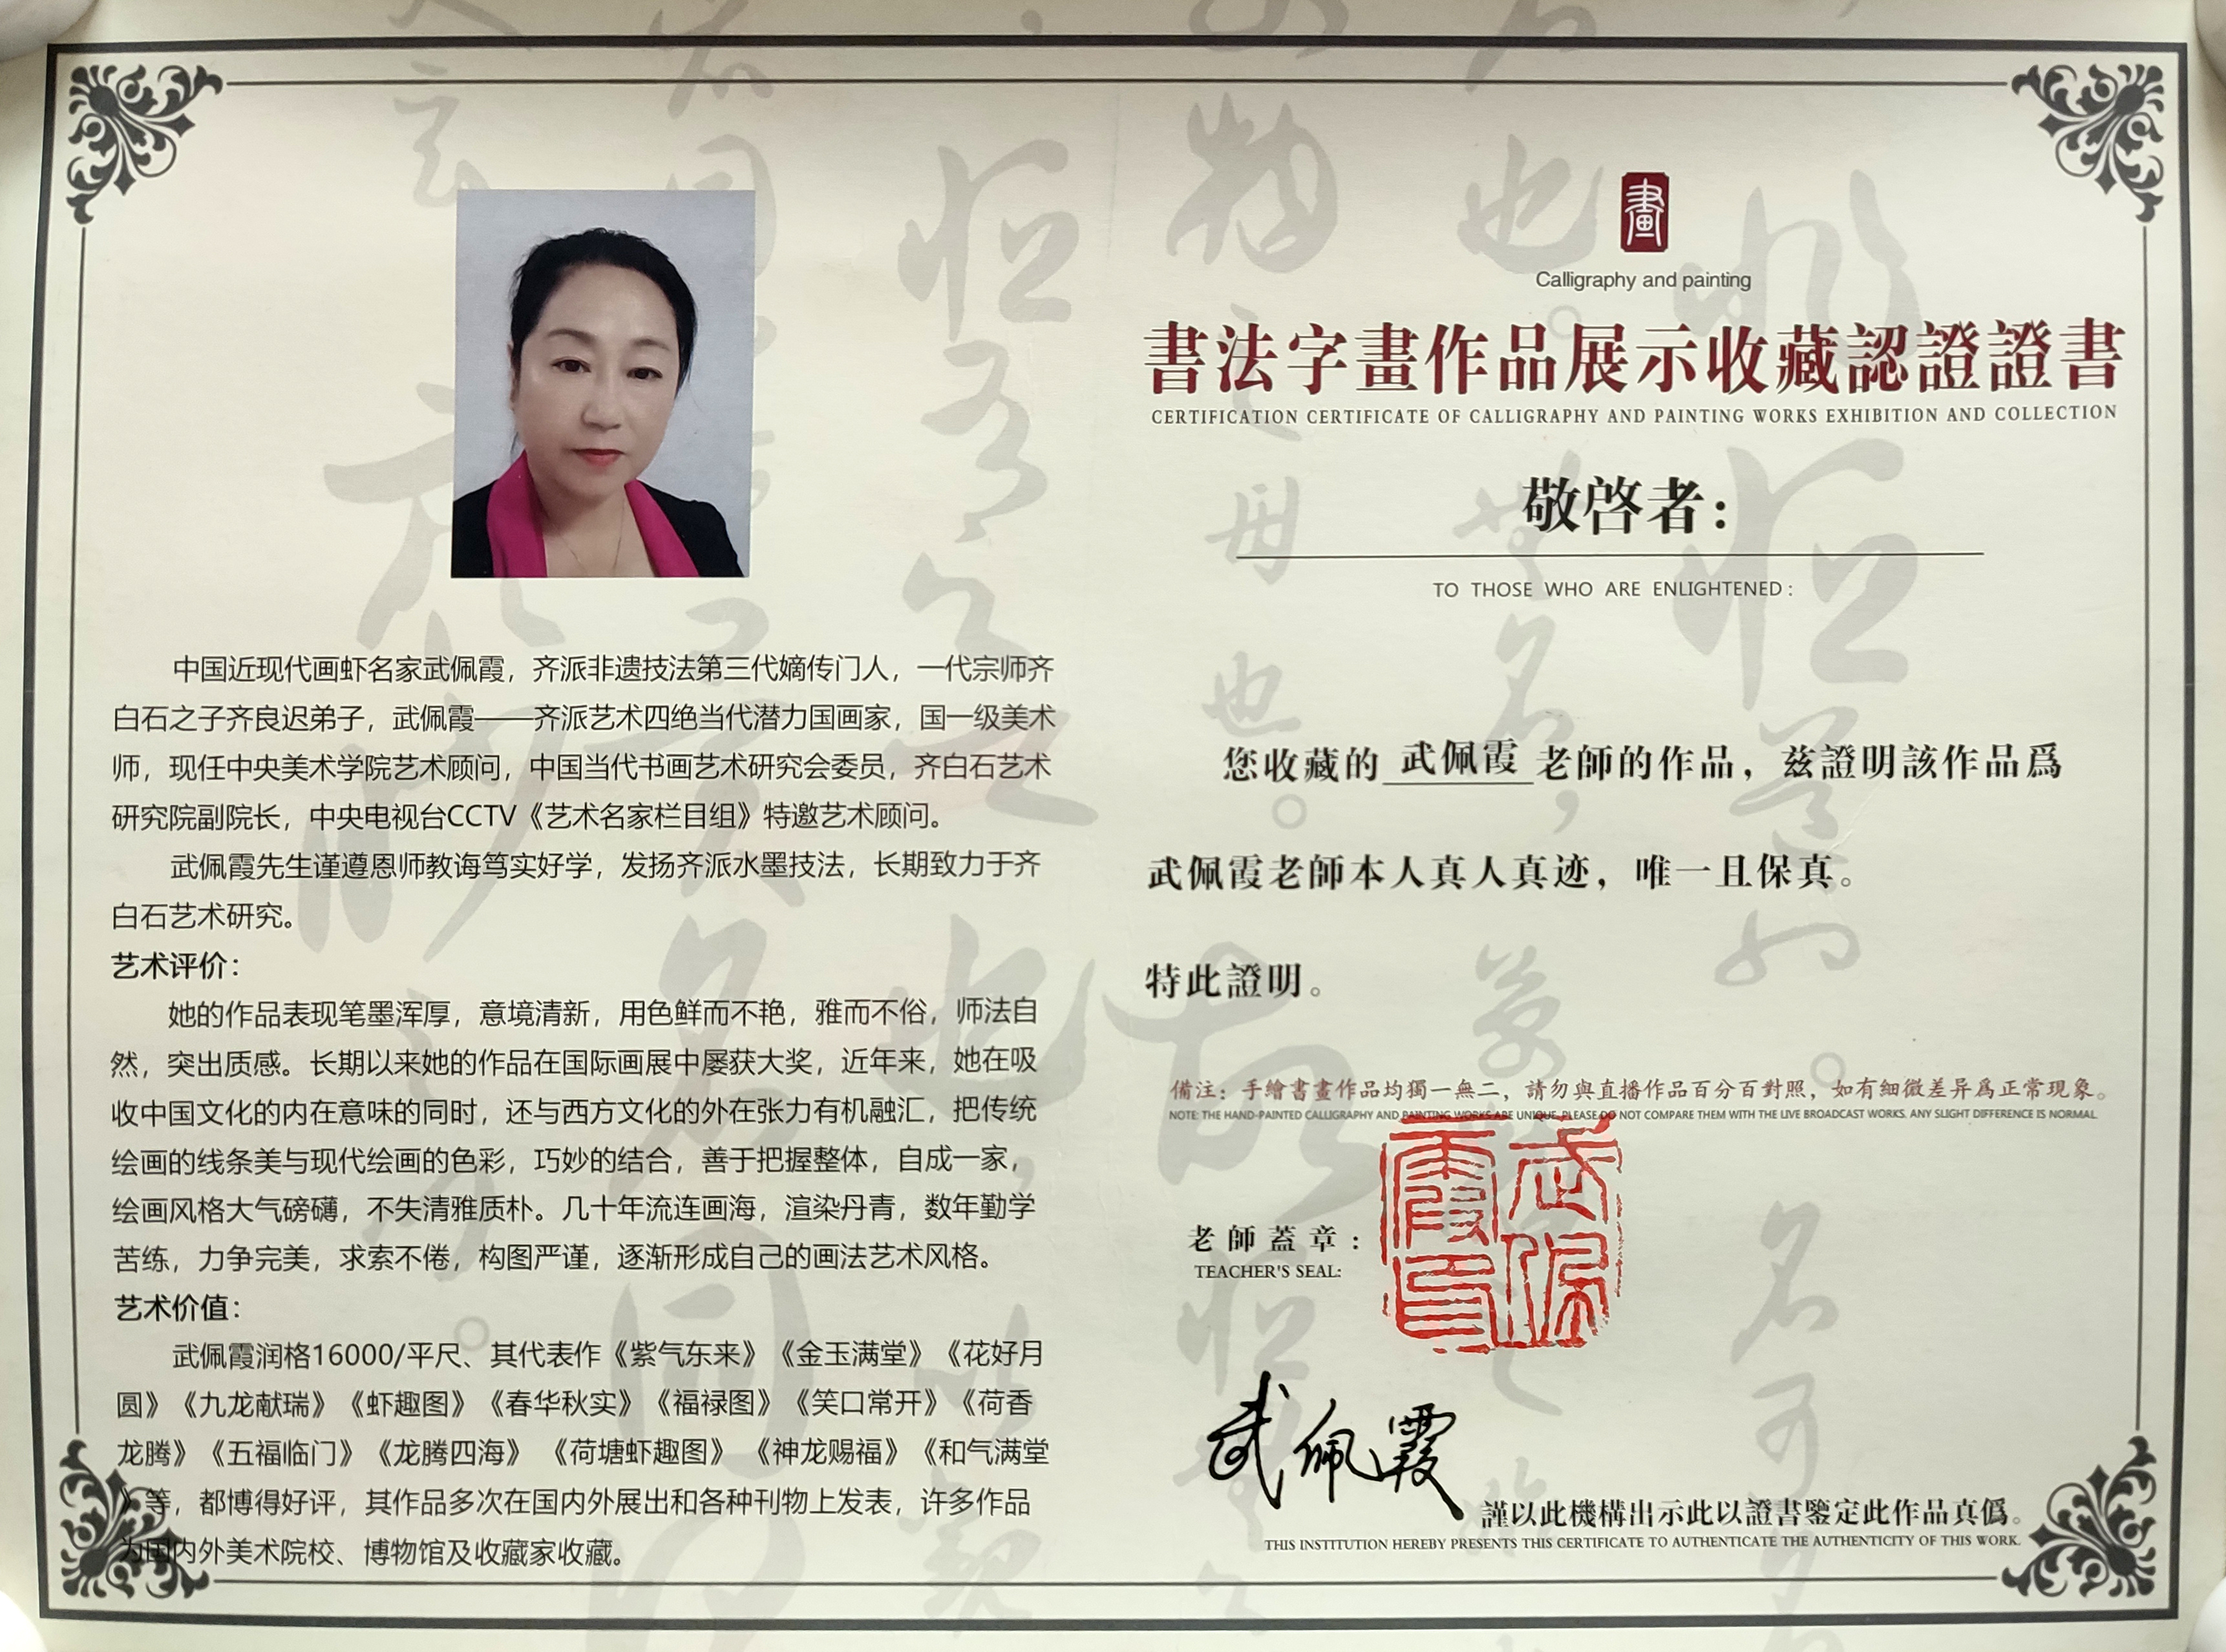 中国近现代画虾名家武佩霞，齐派非遗技法第三代嫡传门人，一代宗师齐
白石之子齐良迟弟子，武佩霞——齐派艺术四绝当代潜力国画家，国一级美术
师，现任中央美术学院艺术顾问，中国当代书画艺术研究会委员，齐白石艺术
研究院副院长，中央电视台CCTV《艺术名家栏目组》特邀艺术顾问。
武佩霞先生谨遵恩师教诲笃实好学，发扬齐派水墨技法，长期致力于齐
白石艺术研究。
艺术评价：
她的作品表现笔墨浑厚，意境清新，用色鲜而不艳，雅而不俗，师法自
然，突出质感。长期以来她的作品在国际画展中屡获大奖，近年来，她在吸
收中国文化的内在意味的同时，还与西方文化的外在张力有机融汇，把传统
绘画的线条美与现代绘画的色彩，巧妙的结合，善于把握整体，自成一家，
绘画风格大气磅礴，不失清雅质朴。几十年流连画海，渲染丹青，数年勤学
苦练，力争完美，求索不倦，构图严谨，逐渐形成自己的画法艺术风格。
艺术价值：
武佩霞润格16000/平尺、其代表作《紫气东来》《金玉满堂》《花好月
圆》《九龙献瑞》《虾趣图》《春华秋实》《福禄图》《笑口常开》《荷香
龙腾》《五福临门》《龙腾四海》《荷塘虾趣图》《神龙赐福》《和气满堂
》等，都博得好评，其作品多次在国内外展出和各种刊物上发表，许多作品
为国内外美术院校、博物馆及收藏家收藏。
畫
Calligraphy and painting
書法字畫作品展示收藏認證證書
CERTIFICATION CERTIFICATE OF CALLIGRAPHY AND PAINTING WORKS EXHIBITION AND COLLECTION
敬啓者：
TO THOSE WHO ARE ENLIGHTENED:
您收藏的 武佩霞 老師的作品，兹證明該作品爲
武佩霞老師本人真人真迹，唯一且保真。
特此證明。
備注：手繪書畫作品均獨一無二，請勿與直播作品百分百對照，如有細微差异爲正常現象。
NOTE: THE HAND-PAINTED CALLIGRAPHY AND PAINTING WORKS ARE UNIQUE. PLEASE DO NOT COMPARE THEM WITH THE LIVE BROADCAST WORKS. ANY SLIGHT DIFFERENCE IS NORMAL.
老師蓋章：
TEACHER'S SEAL:
武佩霞印
武佩霞
謹以此機構出示此以證書鑒定此作品真僞。
THIS INSTITUTION HEREBY PRESENTS THIS CERTIFICATE TO AUTHENTICATE THE AUTHENTICITY OF THIS WORK.